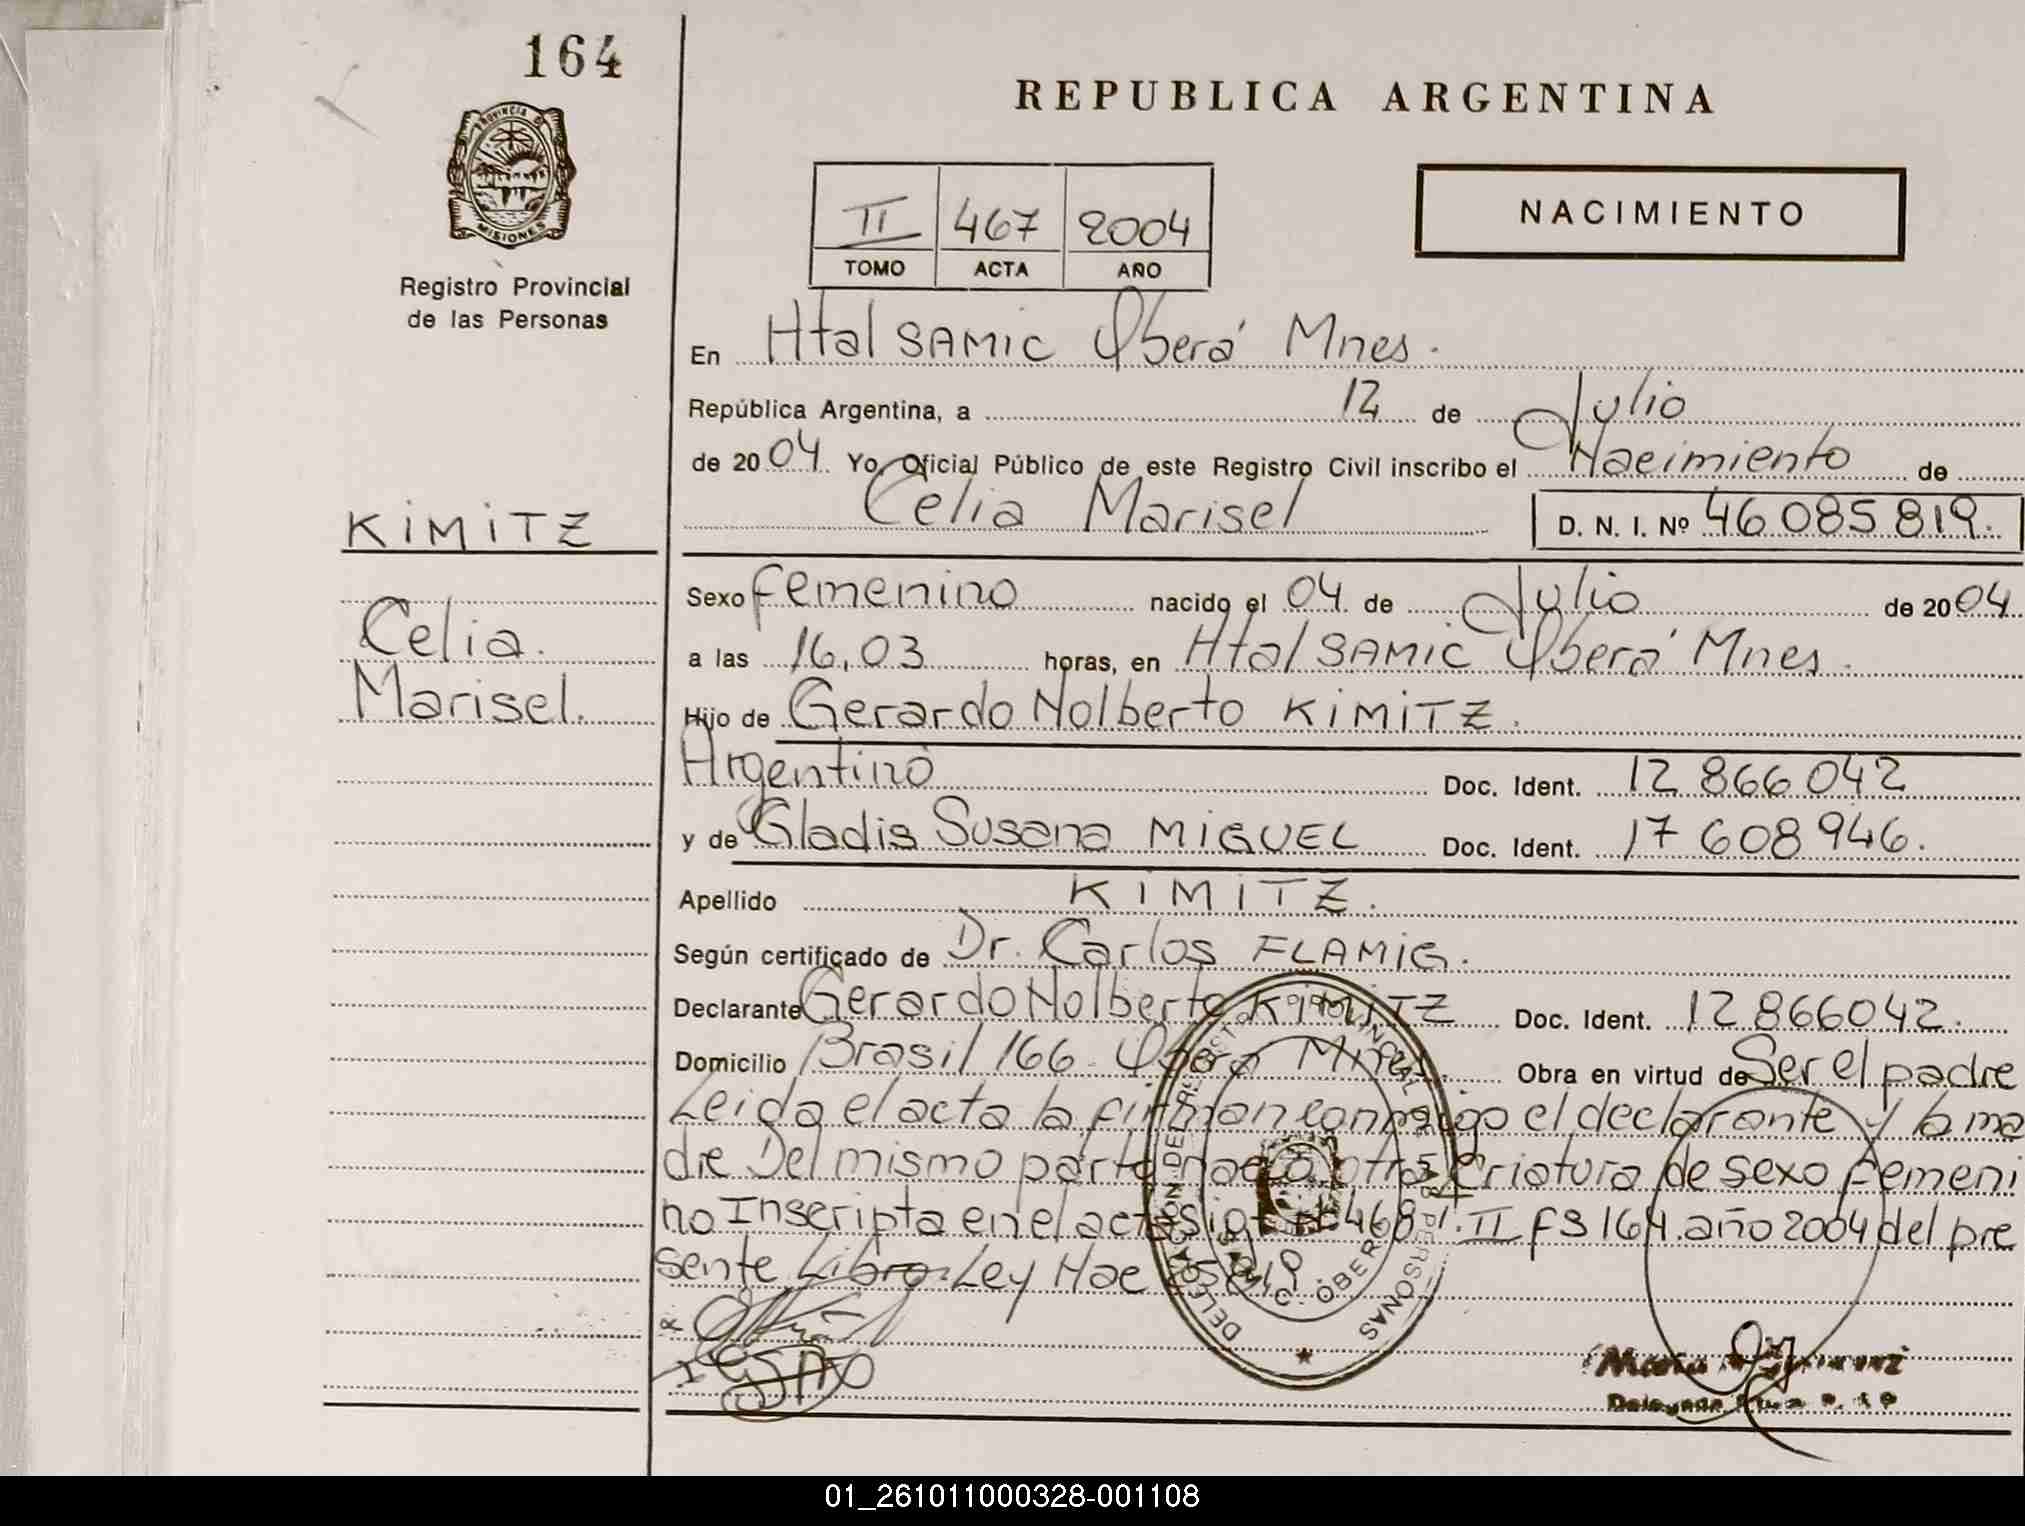 164
REPUBLICA ARGENTINA
PROVINCIA D
MISIONES
II 467 2004
TOMO ACTA AÑO
NACIMIENTO
Registro Provincial
de las Personas
En Htal SAMIC Oberá Mnes.
República Argentina, a 12 de Julio
de 2004 Yo, Oficial Público de este Registro Civil inscribo el Nacimiento de
Celia Marisel D. N. I. Nº 46.085.819.
KIMITZ
Celia
Marisel.
Sexo femenino nacido el 04 de Julio de 2004
a las 16,03 horas, en Htal SAMIC Oberá Mnes.
Hijo de Gerardo Nolberto KIMITZ.
Argentino Doc. Ident. 12 866 042
y de Gladis Susana MIGUEL Doc. Ident. 17 608 946.
Apellido KIMITZ.
Según certificado de Dr. Carlos FLAMIG.
Declarante Gerardo Nolberto KIMITZ Doc. Ident. 12 866 042.
Domicilio Brasil 166. Oberá Mnes. Obra en virtud de Ser el padre
Leida el acta la firman conmigo el declarante y la ma
dre Del mismo parto nació otra Criatura de sexo femeni
no Inscripta en el acta 468 t. II fs 164 año 2004 del pre
sente Libro. Ley Nac
DELEGACION DEL REGISTRO PROVINCIAL DE LAS PERSONAS
SAMIC - OBERA
01_261011000328-001108